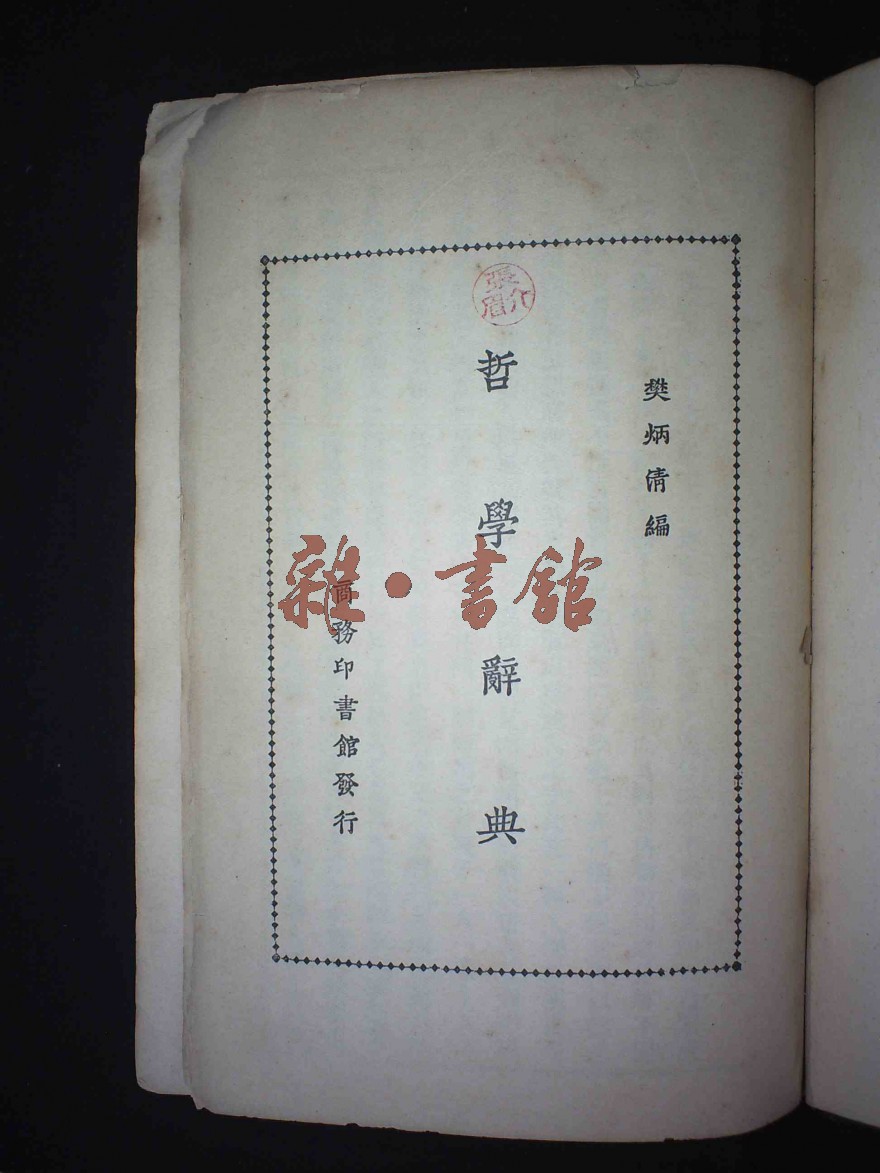 樊炳清編
張介眉
哲學辭典
商務印書館發行
雜·書館